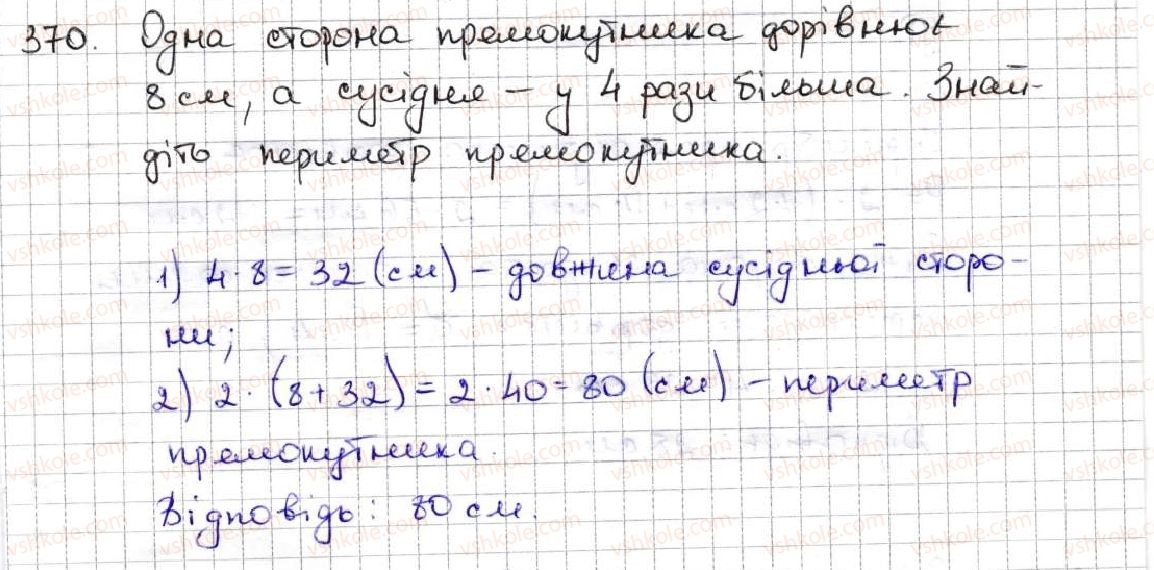 370. Одна сторона прямокутника дорівнює
8 см, а сусідня – у 4 рази більша. Знай-
діть периметр прямокутника.
1) 4 · 8 = 32 (см) – довжина сусідньої сторо-
ни;
2) 2 · (8 + 32) = 2 · 40 = 80 (см) – периметр
прямокутника.
Відповідь: 80 см.